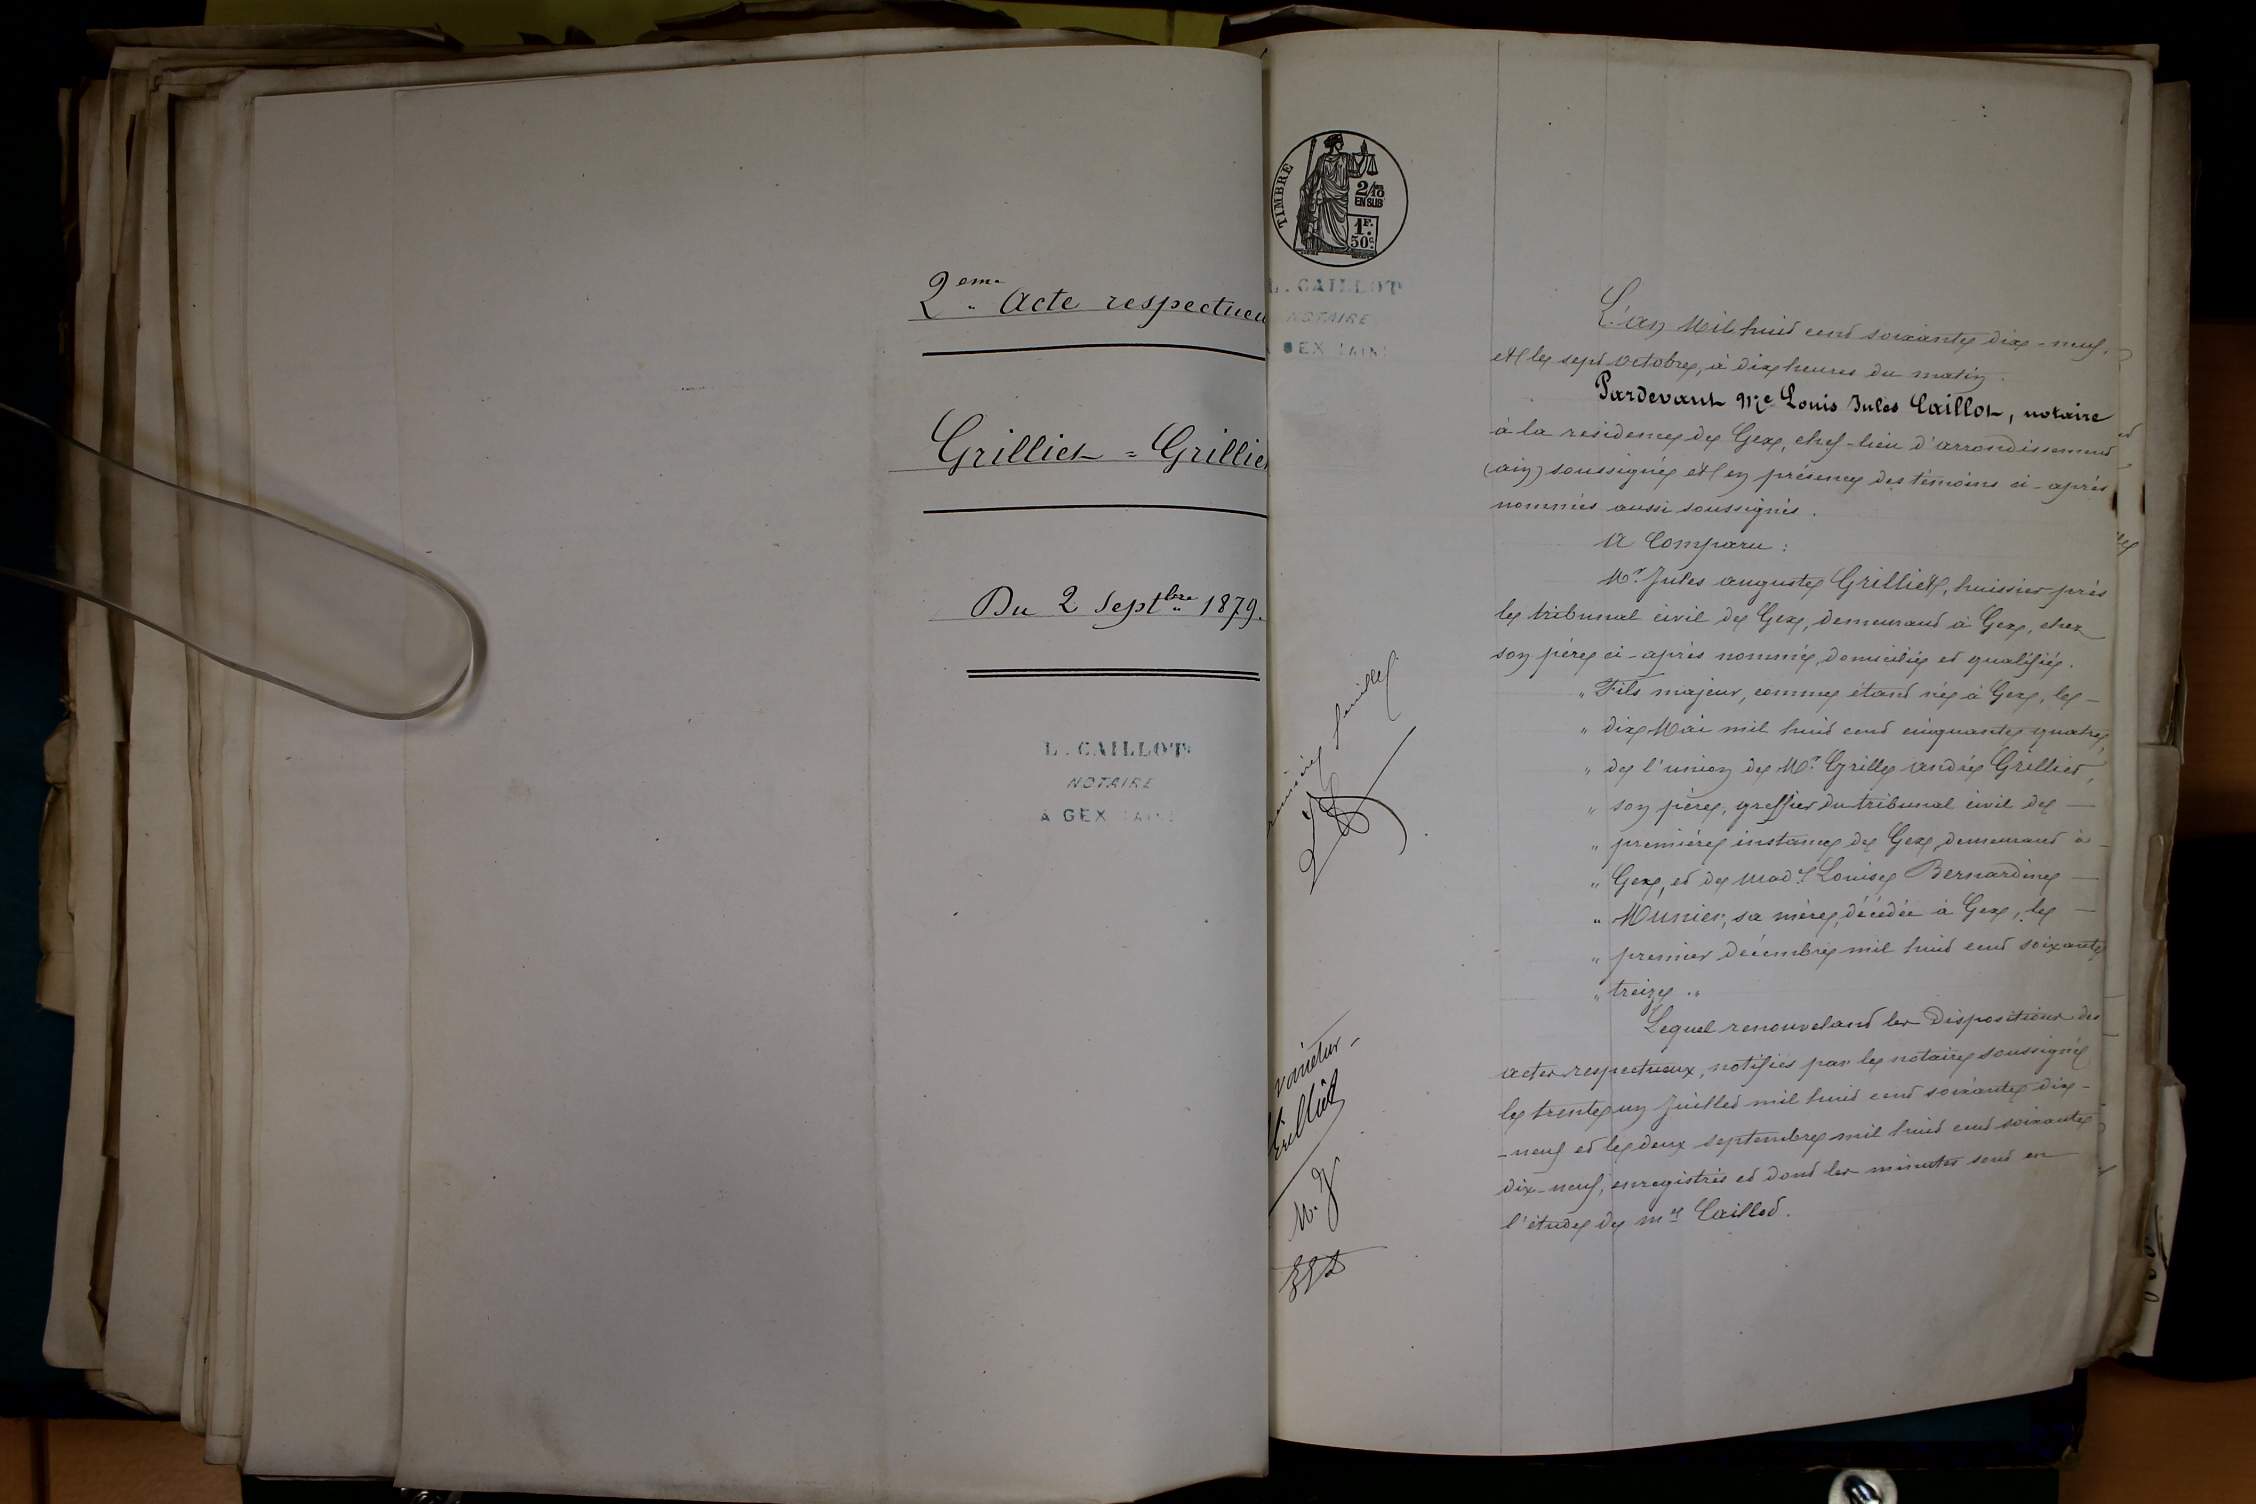 2eme Acte respectueu
Grilliet = Grillie
Du 2 Septbre 1879.
L. CAILLOT
NOTAIRE
A GEX (AIN)
TIMBRE
2/10
EN SUS
1F.
50c.
L. CAILLOT
NOTAIRE
GEX (AIN)
L'an Mil huit cent soixante dix-neuf,
et le sept Octobre, à dix heures du matin.
Pardevant Me Louis Jules Caillot, notaire
à la résidence de Gex, chef-lieu d'arrondissement
(ain) soussigné et en présence des témoins ci-après
nommés aussi soussignés.
A Comparu :
Mr. Jules auguste Grilliet, huissier près
le tribunal civil de Gex, demeurant à Gex, chez
son père ci-après nommé, domicilié et qualifié.
" Fils majeur, comme étant né à Gex, le -
" dix Mai mil huit cent cinquante quatre,
" de l'union de Mr. André Grilliet,
" son père, greffier du tribunal civil de -
" première instance de Gex, demeurant à -
" Gex, et de Made Louise Bernardine -
" Munier, sa mère, décédée à Gex, le -
" premier décembre mil huit cent soixante
" treize. "
Lequel renouvelant les Dispositions des
actes respectueux, notifiés par le notaire soussigné
le trente un Juillet mil huit cent soixante dix-
-neuf et le deux septembre mil huit cent soixante
dix-neuf, enregistrés et dont les minutes sont en
l'étude de me Caillot.
varietur -
Grilliet